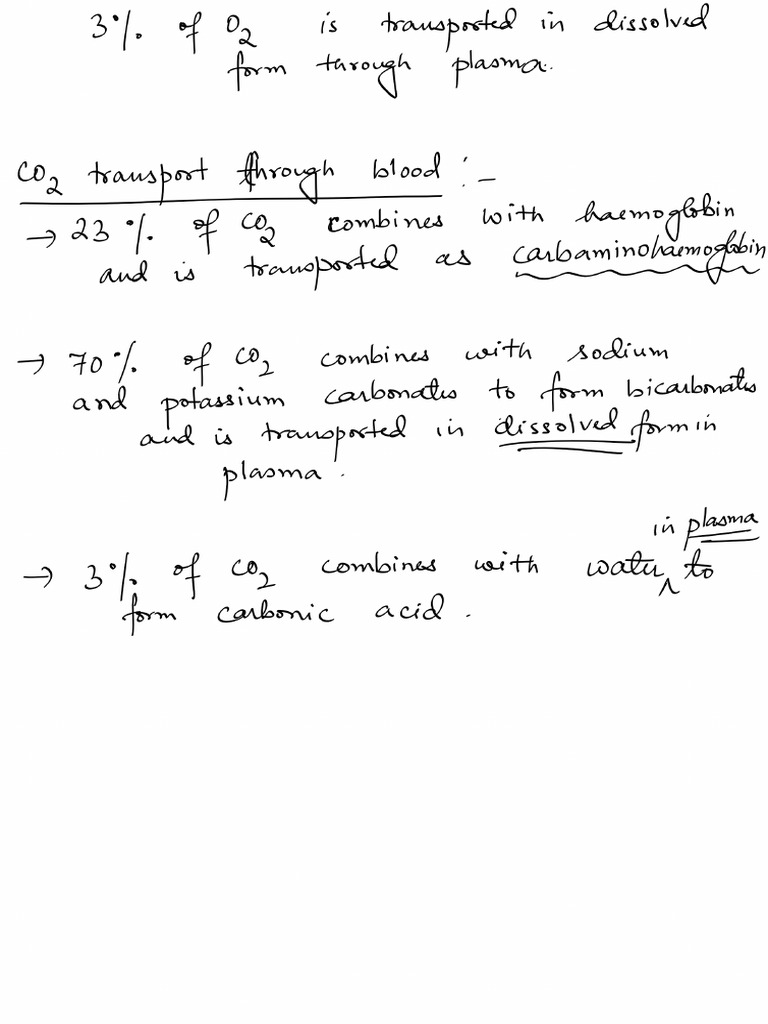 3%. of O₂ is transported in dissolved
form through plasma.
CO₂ transport through blood :-
→ 23 %. of CO₂ combines with haemoglobin
and is transported as carbaminohaemoglobin
→ 70%. of CO₂ combines with sodium
and potassium carbonates to form bicarbonates
and is transported in dissolved form in
plasma.
in plasma
→ 3%. of CO₂ combines with water ^ to
form carbonic acid.